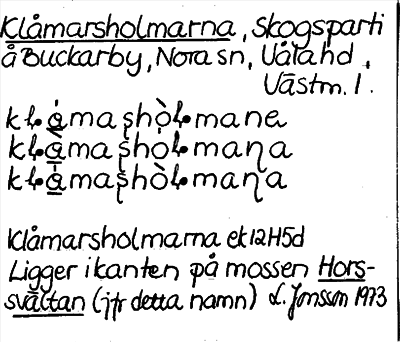 Klåmarsholmarna, skogsparti
å Buckarby, Nora sn, Våland,
Västm. l.
kł̥àmaʂhòł̥mane
kł̥àmaʂhoł̥maɳa
kł̥àmaʂhòł̥maɳa
Klåmarsholmarna ek 12H5d
Ligger i kanten på mossen Hors-
svältan (jfr detta namn) L. Jonsson 1973